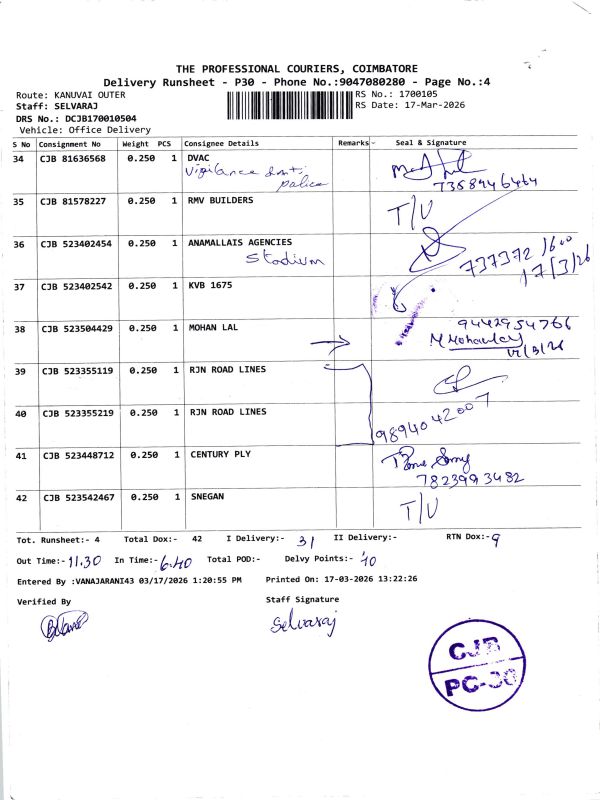 THE PROFESSIONAL COURIERS, COIMBATORE
Delivery Runsheet - P30 - Phone No.:9047080280 - Page No.:4
Route: KANUVAI OUTER
RS No.: 1700105
Staff: SELVARAJ
RS Date: 17-Mar-2026
DRS No.: DCJB170010504
Vehicle: Office Delivery
S No Consignment No Weight PCS Consignee Details Remarks Seal & Signature
34 CJB 81636568 0.250 1 DVAC
Vigilance
police
7358946464
35 CJB 81578227 0.250 1 RMV BUILDERS
T/U
36 CJB 523402454 0.250 1 ANAMALLAIS AGENCIES
Stadium
737372 1600
17/3/26
37 CJB 523402542 0.250 1 KVB 1675
38 CJB 523504429 0.250 1 MOHAN LAL
9442954766
39 CJB 523355119 0.250 1 RJN ROAD LINES
40 CJB 523355219 0.250 1 RJN ROAD LINES
9894042007
41 CJB 523448712 0.250 1 CENTURY PLY
7823993482
42 CJB 523542467 0.250 1 SNEGAN
T/U
Tot. Runsheet:- 4 Total Dox:- 42 I Delivery:- 31 II Delivery:- RTN Dox:- 9
Out Time:- 11.30 In Time:- 6.40 Total POD:- Delvy Points:- 10
Entered By :VANAJARANI43 03/17/2026 1:20:55 PM Printed On: 17-03-2026 13:22:26
Verified By
Staff Signature
Selvaraj
CJB
PC-30